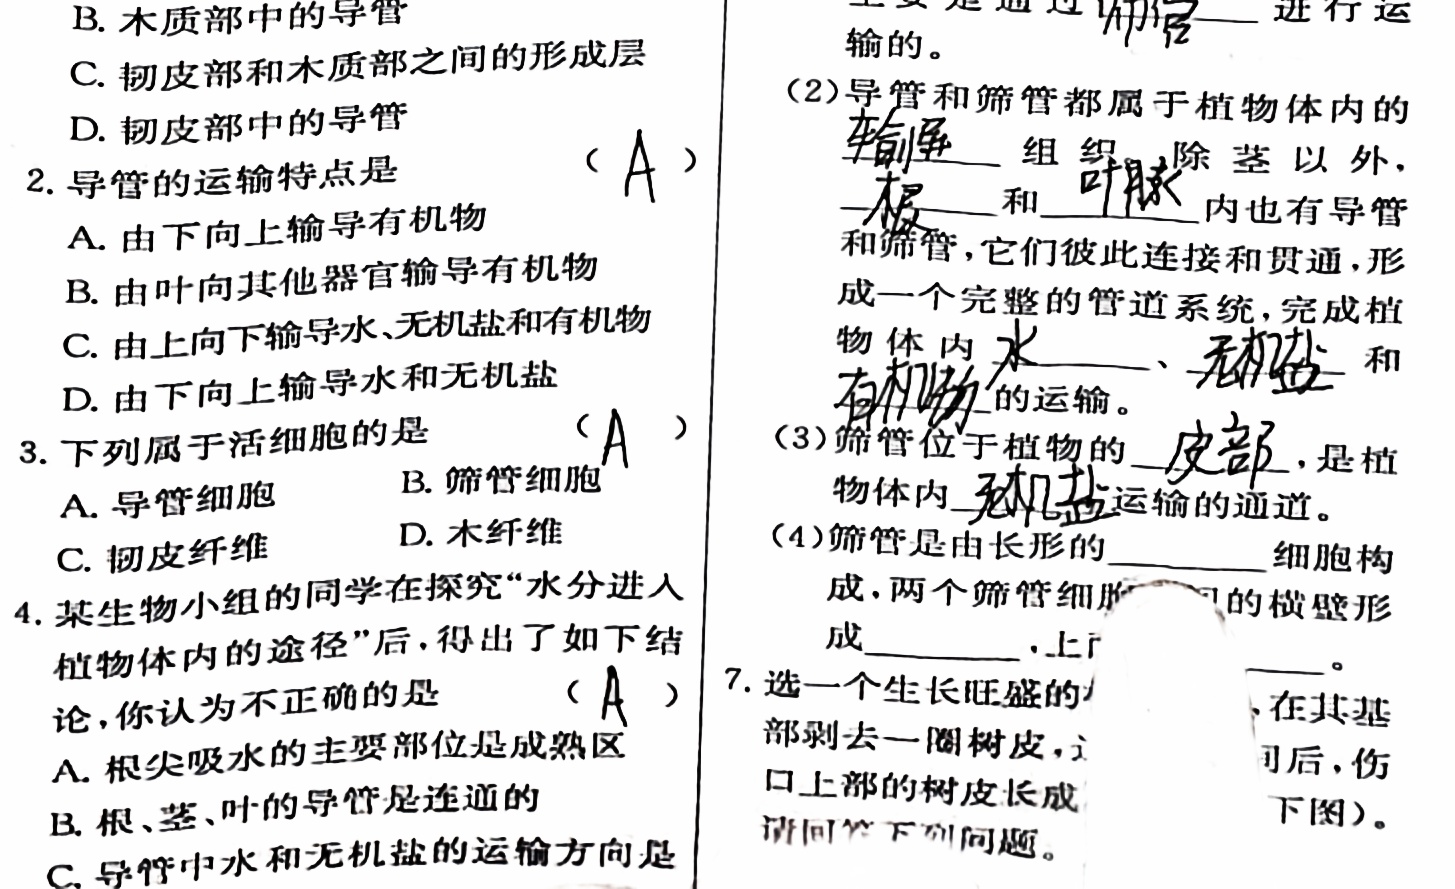 B. 木质部中的导管
C. 韧皮部和木质部之间的形成层
D. 韧皮部中的导管
2. 导管的运输特点是 ( A )
A. 由下向上输导有机物
B. 由叶向其他器官输导有机物
C. 由上向下输导水、无机盐和有机物
D. 由下向上输导水和无机盐
3. 下列属于活细胞的是 ( A )
A. 导管细胞 B. 筛管细胞
C. 韧皮纤维 D. 木纤维
4. 某生物小组的同学在探究“水分进入
植物体内的途径”后,得出了如下结
论,你认为不正确的是 ( A )
A. 根尖吸水的主要部位是成熟区
B. 根、茎、叶的导管是连通的
C. 导管中水和无机盐的运输方向是
主要是通过 筛管 进行运
输的。
(2)导管和筛管都属于植物体内的
输导 组织。除茎以外,
根 和 叶脉 内也有导管
和筛管,它们彼此连接和贯通,形
成一个完整的管道系统,完成植
物体内 水 、 无机盐 和
有机物 的运输。
(3)筛管位于植物的 皮部 ,是植
物体内 无机盐 运输的通道。
(4)筛管是由长形的______细胞构
成,两个筛管细胞 的横壁形
成______,上 ______。
7. 选一个生长旺盛的 ,在其基
部剥去一圈树皮, 后,伤
口上部的树皮长成 下图)。
请回答下列问题。